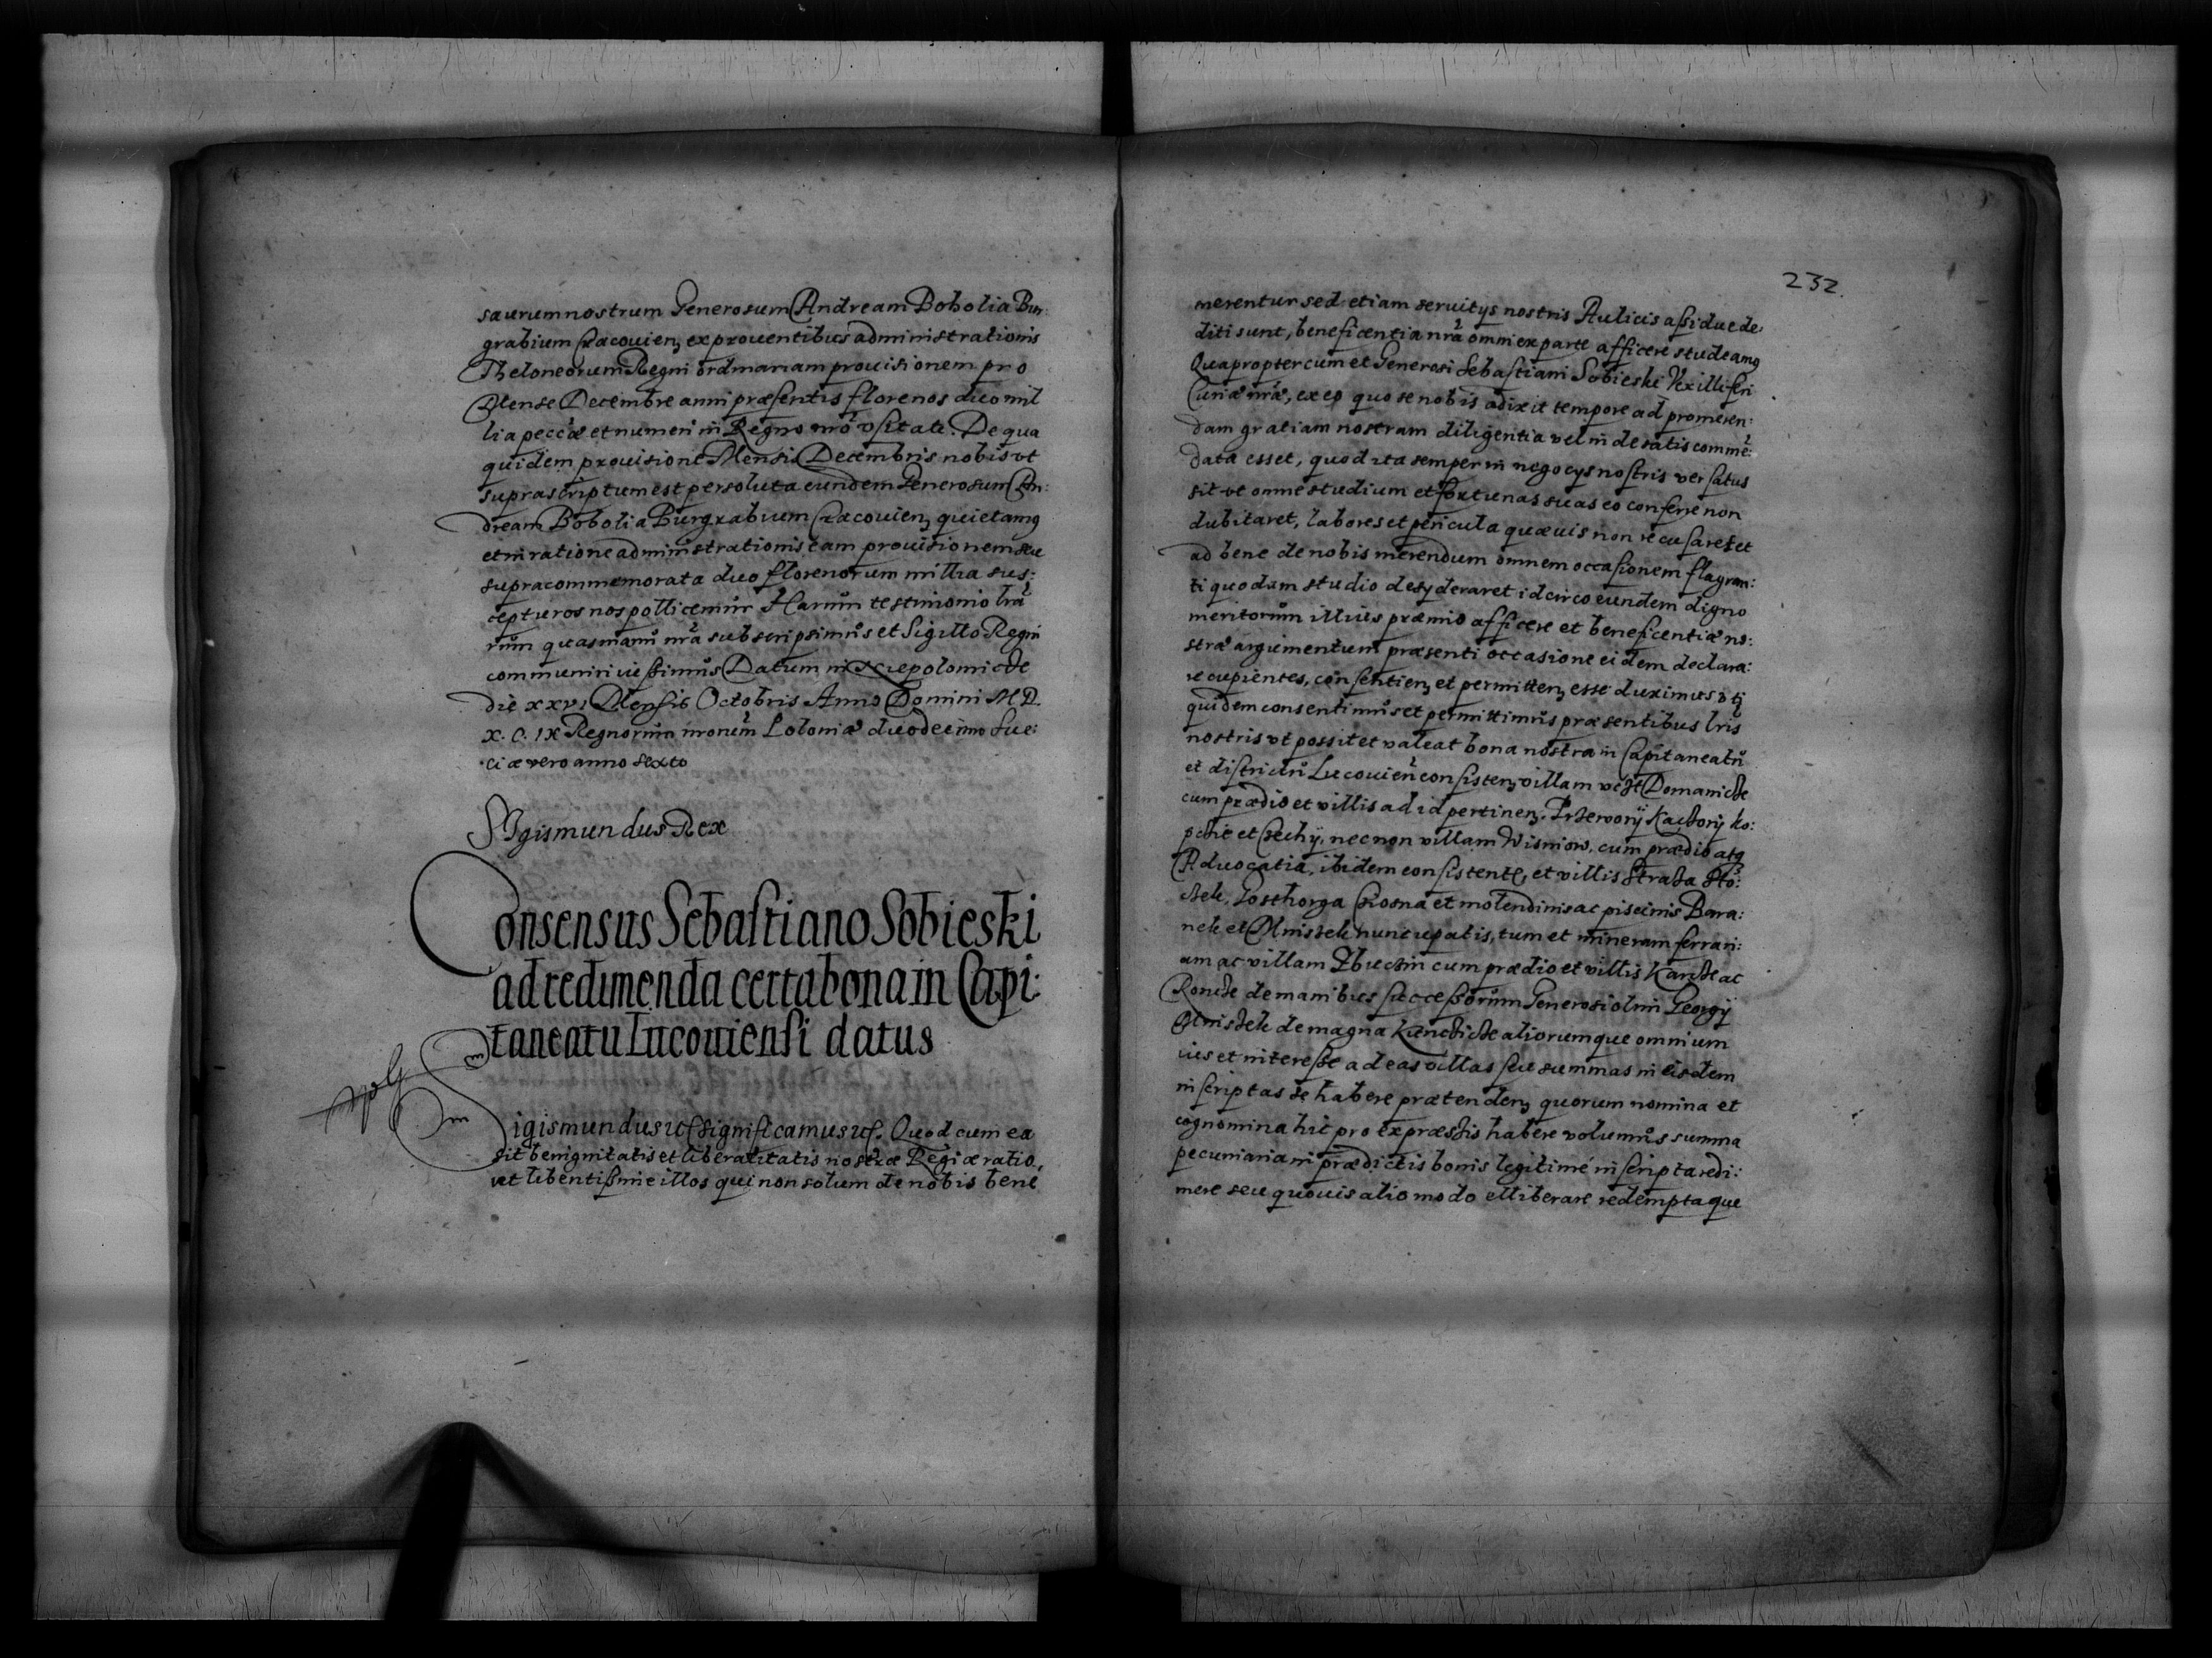 saurum nostrum Generosum Andream Bobolia Bur:
grabium Cracouien, ex prouentibus administrationis
Theloneorum Regni ordinariam prouisionem pro
Mense Decembre anni præsentis florenos duo mil
lia peccæ et numeri in Regno nro vsitate. De qua
quidem prouisione Mensis Decembris nobis vt
supra scriptum est persoluta eundem Generosum An:
dream Bobolia Burgrabium Cracouien, quietamq
et in ratione administrationis eam prouisionem seu
supra commemorata duo florenorum millia sus:
cepturos nos pollicemur Harum testimonio lra
rum quas manu nra subscripsimus et Sigillo Regni
communiri iussimus Datum in
die xxvi Mensis Octobris Anno Domini M D.
X. C. IX Regnorum nrorum Poloniæ duodecimo Sue:
ciæ vero anno sexto
Sigismundus Rex
Consensus Sebastiano Sobieski
ad redimenda certa bona in Capi:
taneatu Lucouiensi datus
Sigismundus significamus Quod cum ea
sit benignitatis et liberalitatis nostræ Regiæ ratio,
vt libentissime illos qui non solum de nobis bene
232.
merentur sed etiam seruitys nostris Aulicis assidue de:
diti sunt, beneficentia nra omni ex parte afficere studeamq
Quapropter cum et Generosi Sebastiani Sobieski Vexilliferi
Curiæ nræ, ex eo quo se nobis adixit tempore ad promeren:
dam gratiam nostram diligentia vel inde satis comme:
data esset, quod ita semper in negocys nostris versatus
sit vt omne studium et fortunas suas eo conferre non
dubitaret, labores et pericula quæuis non recusaret et
ad bene de nobis merendum omnem occasionem flagran:
ti quodam studio desyderaret idcirco eundem digno
meritorum illius præmio afficere et beneficentiæ no:
stræ argumentum præsenti occasione eidem declara:
re cupientes, consentien, et permitten, esse duximus vti
quidem consentimus et permittimus præsentibus lris
nostris vt possit et valeat bona nostra in Capitaneatu
et districtu Lucouien consisten, villam Domanicze
cum prædio et villis ad id pertinen. Przewory Kaczory Ko:
pcie et Czechy, necnon villam Wisniow, cum prædio atq
Aduocatia, ibidem consistente, et villis
Krosna et molendinis ac piscinis Bara:
nek et Mniszek nuncupatis, tum et mineram ferrari:
am ac villam Zbuczin cum prædio et villis Karcze ac
Roncze de manibus successorum Generosi olim Georgy
Mniszek de magna Kunczicze aliorumque omnium
ius et interesse ad eas villas seu summas in eisdem
inscriptas se habere prætenden, quorum nomina et
cognomina hic pro expressis habere volumus summa
pecuniaria in prædictis bonis legitime inscripta redi:
mere seu quouis alio modo eliberare redemptaque